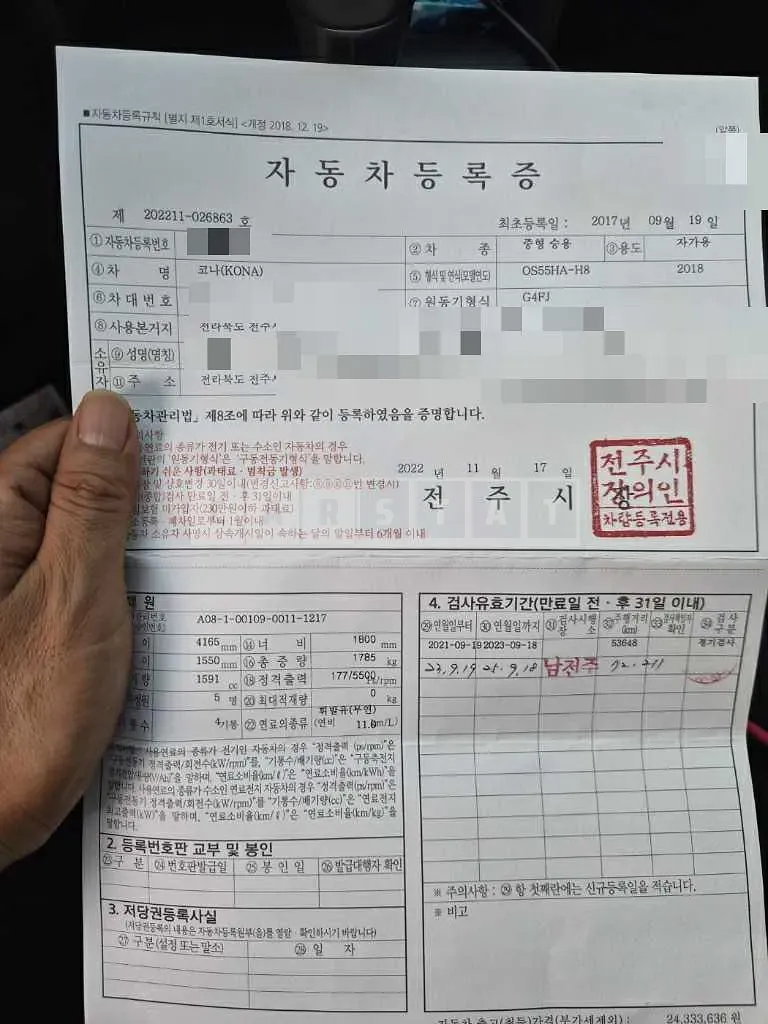 ■ 자동차등록규칙 [별지 제1호서식] <개정 2018. 12. 19>
(앞쪽)
자동차등록증
제 202211-026863 호
최초등록일 : 2017년 09월 19일
① 자동차등록번호 ② 차 종 중형 승용 ③용도 자가용
④ 차 명 코나(KONA) ⑤ 형식 및 연식(모델연도) OS55HA-H8 2018
⑥ 차 대 번 호 ⑦ 원동기형식 G4FJ
⑧ 사용본거지 전라북도 전주
소유자 ⑨ 성명(명칭)
⑪ 주 소 전라북도 전주
동차관리법」 제8조에 따라 위와 같이 등록하였음을 증명합니다.
의사항
연료의 종류가 전기 또는 수소인 자동차의 경우
란의 '원동기형식'은 '구동전동기형식'을 말합니다.
하기 쉬운 사항(과태료ㆍ범칙금 발생)
및 상호변경 30일이내
(종합)검사 만료일 전ㆍ후 31일이내
보험 미가입자(230만원이하 과태료)
폐차일로부터 1월이내
동차 소유자 사망시 상속개시일이 속하는 달의 말일부터 6개월 이내
2022 년 11 월 17 일
전 주 시 장
전주시
장의인
차량등록전용
CARSTAT
제 원
A08-1-00109-0011-1217
이 4165 mm ⑭ 너 비 1800 mm
이 1550 mm ⑯ 총 중 량 1785 kg
량 1591 cc ⑱ 정격출력 177/5500 ps/rpm
정원 5 명 ⑳ 최대적재량 0 kg
통수 4기통 ㉒ 연료의종류 휘발유(무연) (연비 11.0 km/L)
사용연료의 종류가 전기인 자동차의 경우 "정격출력 (ps/rpm)"은
"구동전동기 정격출력/회전수(kW/rpm)"를, "기통수/배기량(cc)"은 "구동축전지
을 말하며, "연료소비율(km/ℓ)"은 "연료소비율(km/kWh)"을
말합니다. 사용연료의 종류가 수소인 자동차의 경우 "정격출력(ps/rpm)"은
"구동전동기 정격출력/회전수(kW/rpm)"를 "기통수/배기량(cc)"은 "연료전지
최고출력(kW)"을 말하며, "연료소비율(km/ℓ)"은 "연료소비율(km/kg)"을
말합니다.
2. 등록번호판 교부 및 봉인
㉓구 분 ㉔번호판발급일 ㉕봉 인 일 ㉖발급대행자 확인
3. 저당권등록사실
(저당권등록의 내용은 자동차등록원부(을)를 열람ㆍ확인하시기 바랍니다)
㉗ 구분(설정 또는 말소) ㉘ 일 자
4. 검사유효기간(만료일 전ㆍ후 31일 이내)
㉙연월일부터 ㉚연월일까지 ㉛검사시행장소 ㉜주행거리(km) ㉝ 확인 ㉞검사구분
2021-09-19 2023-09-18 53648 정기검사
23.9.19 25.9.18 남전주
※ 주의사항 : ㉙ 항 첫째란에는 신규등록일을 적습니다.
※ 비고
자동차 출고(취득)가격(부가세제외) : 24,333,636 원